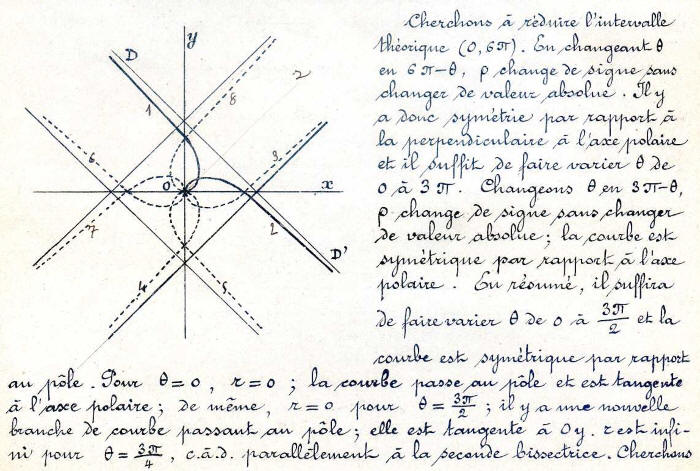 Cherchons à réduire l'intervalle
théorique (0, 6π). En changeant θ
en 6π-θ, ρ change de signe sans
changer de valeur absolue. Il y
a donc symétrie par rapport à
la perpendiculaire à l'axe polaire
et il suffit de faire varier θ de
0 à 3π. Changeons θ en 3π-θ,
ρ change de signe sans changer
de valeur absolue; la courbe est
symétrique par rapport à l'axe
polaire. En résumé, il suffira
de faire varier θ de 0 à 3π/2 et la
courbe est symétrique par rapport
au pôle. Pour θ = 0, r = 0 ; la courbe passe au pôle et est tangente
à l'axe polaire; de même, r = 0 pour θ = 3π/2 ; il y a une nouvelle
branche de courbe passant au pôle; elle est tangente à Oy. r est infi-
ni pour θ = 3π/4, c.à.d. parallèlement à la seconde bissectrice. Cherchons
D
y
1
8
2
6
O
3
x
7
2
D'
4
5